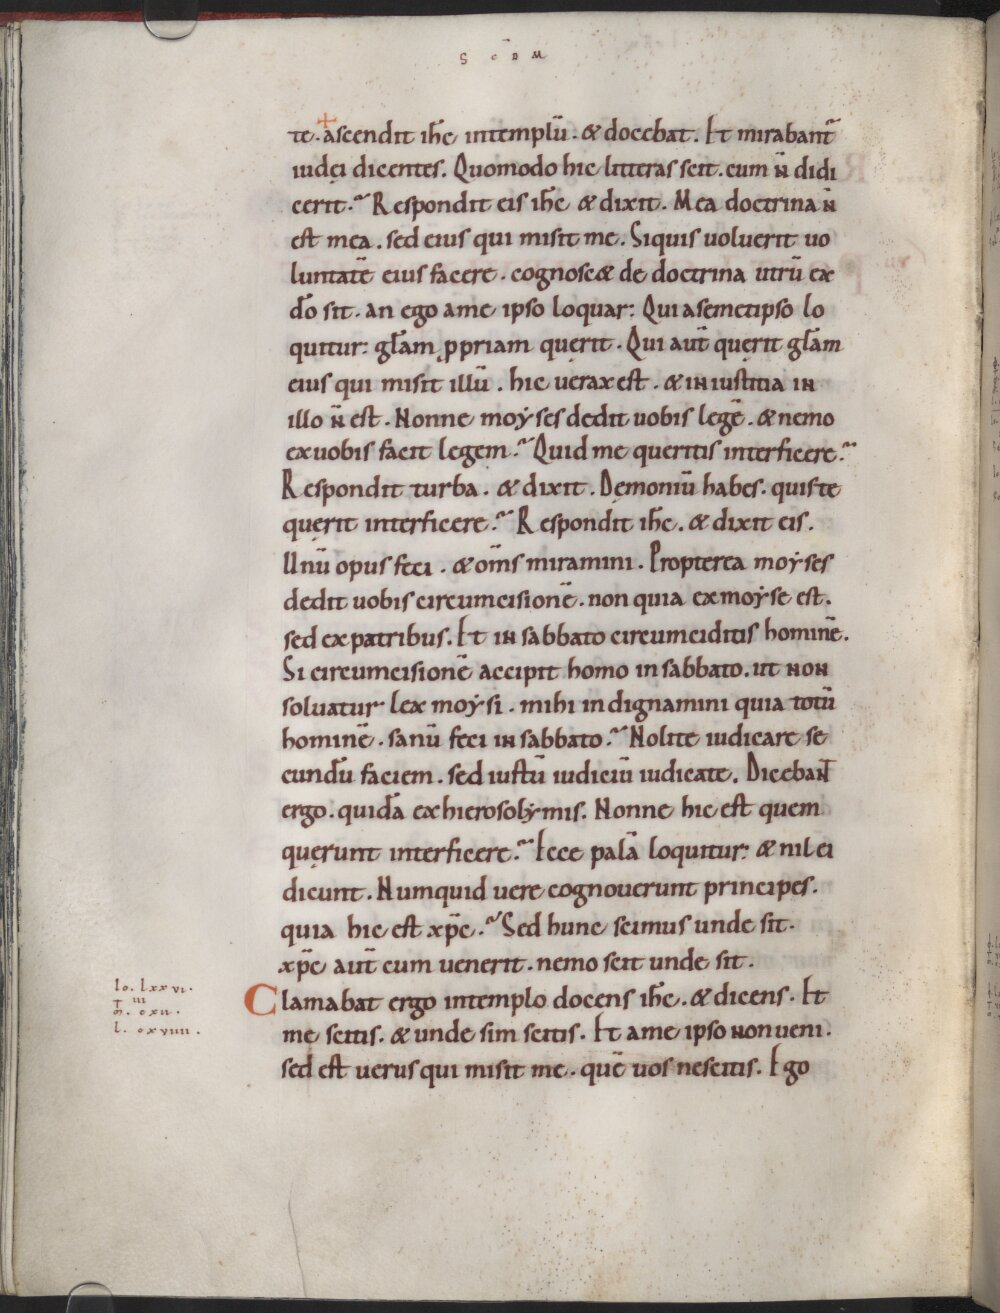 S c̄ D M
te. ascendit ih̄c intemplū. & docebat. Et mirabant̄
iudei dicentes. Quomodo hic litteras scit. cum n̄ didi
cerit? Respondit eis ih̄c & dixit. Mea doctrina n̄
est mea. sed eius qui misit me. Siquis uoluerit uo
luntatē eius facere. cognosc& de doctrina utrū ex
dō sit. an ego ame ipso loquar: Qui asemetipso lo
quitur: glām ꝓpriam querit. Qui aut̄ querit glām
eius qui misit illū. hic uerax est. & in iustitia in
illo n̄ est. Nonne moẏses dedit uobis legē. & nemo
ex uobis facit legem? Quid me queritis interficere?
Respondit turba. & dixit. Demoniū habes. quis te
querit interficere? Respondit ih̄c. & dixit eis.
Unū opus feci. & om̄s miramini. Propterea moẏses
dedit uobis circumcisionē. non quia ex moẏse est.
sed ex patribus. Et in sabbato circumciditis hominē.
Si circumcisionē accipit homo in sabbato. ut non
soluatur lex moẏsi. mihi indignamini quia totū
hominē. sanū feci in sabbato? Nolite iudicare se
cundū faciem. sed iustū iudiciū iudicate. Dicebant
ergo. quidā ex hierosolẏmis. Nonne hic est quem
querunt interficere? Ecce palā loquitur: & nil ei
dicunt. Numquid uere cognouerunt principes.
quia hic est xp̄c? Sed hunc scimus unde sit.
xp̄c aut̄ cum uenerit. nemo scit unde sit.
Clamabat ergo intemplo docens ih̄c. & dicens. Et
me scitis. & unde sim scitis. Et ame ipso non ueni.
sed est uerus qui misit me. quē uos nescitis. Ego
Io. lxxvi.
III
m̄. cxii.
l. cxviiii.